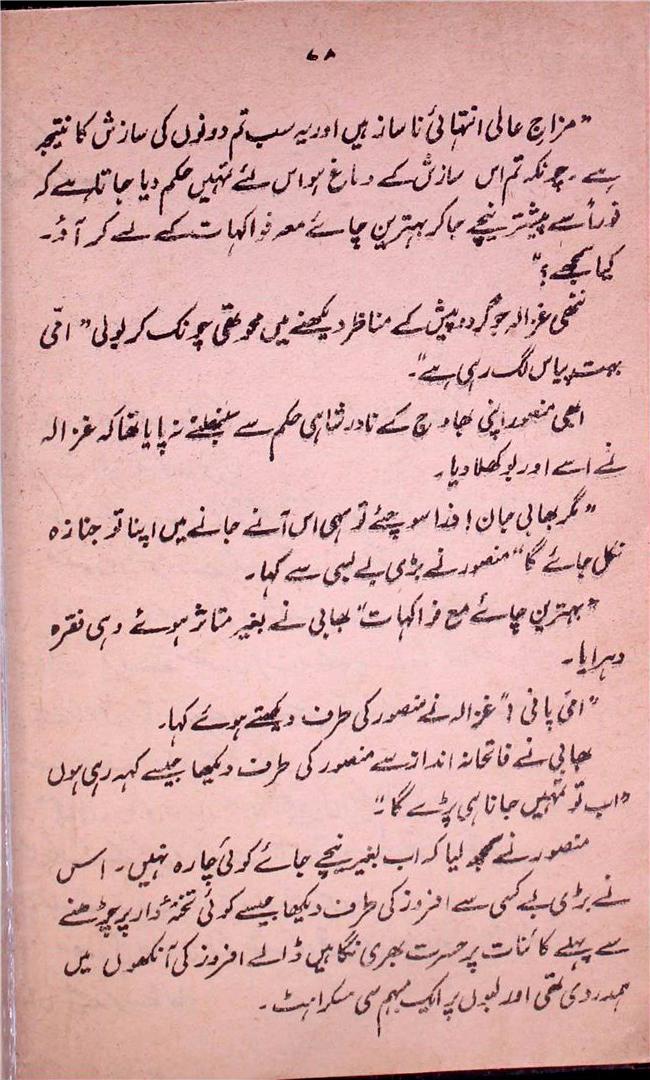 ۶۸
”مزاجِ عالی انتہائی ناساز ہیں اور یہ سب تم دونوں کی سازش کا نتیجہ
ہے۔ چونکہ تم اس سازش کے دماغ ہو اس لئے تمہیں حکم دیا جاتا ہے کہ
فوراً سے پیشتر نیچے جا کر بہترین چائے معہ فواکہات کے لے کر آؤ۔
کیا سمجھے؟“
ننھی غزالہ جو گردو پیش کے مناظر دیکھنے میں محو تھی چونک کر بولی ”امّی
بہت پیاس لگ رہی ہے“۔
ابھی منصور اپنی بھاوج کے نادر شاہی حکم سے سنبھلنے نہ پایا تھا کہ غزالہ
نے اسے اور بوکھلا دیا۔
”مگر بھابی جان! ذرا سوچئے تو سہی اس آنے جانے میں اپنا تو جنازہ
نکل جائے گا“ منصور نے بڑی بے بسی سے کہا۔
”بہترین چائے مع فواکہات“ بھابی نے بغیر متاثر ہوئے وہی فقرہ
دہرایا۔
”امّی پانی!“ غزالہ نے منصور کی طرف دیکھتے ہوئے کہا۔
بھابی نے فاتحانہ انداز سے منصور کی طرف دیکھا جیسے کہہ رہی ہوں
”اب تو تمہیں جانا ہی پڑے گا۔“
منصور نے سمجھ لیا کہ اب بغیر نیچے جائے کوئی چارہ نہیں۔ اس
نے بڑی بے کسی سے افروز کی طرف دیکھا جیسے کوئی تختۂ دار پر چڑھنے
سے پہلے کائنات پر حسرت بھری نگاہیں ڈالے افروز کی آنکھوں میں
ہمدردی تھی اور لبوں پر ایک مبہم سی مسکراہٹ۔